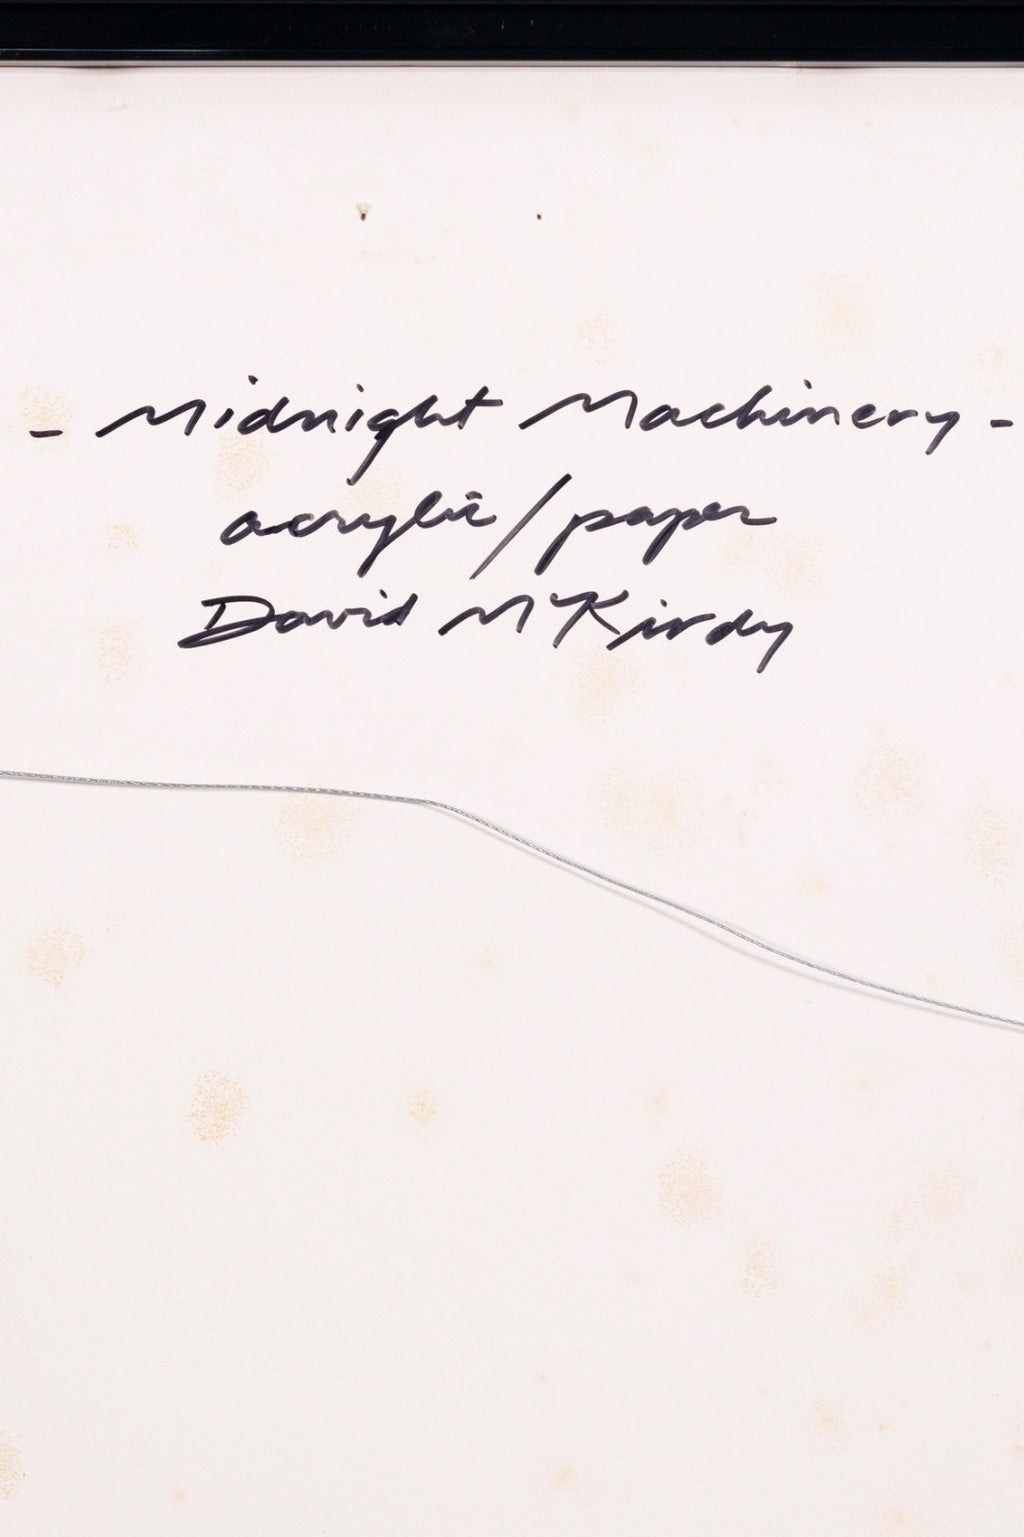 - Midnight Machinery -
acrylic/paper
David McKirdy